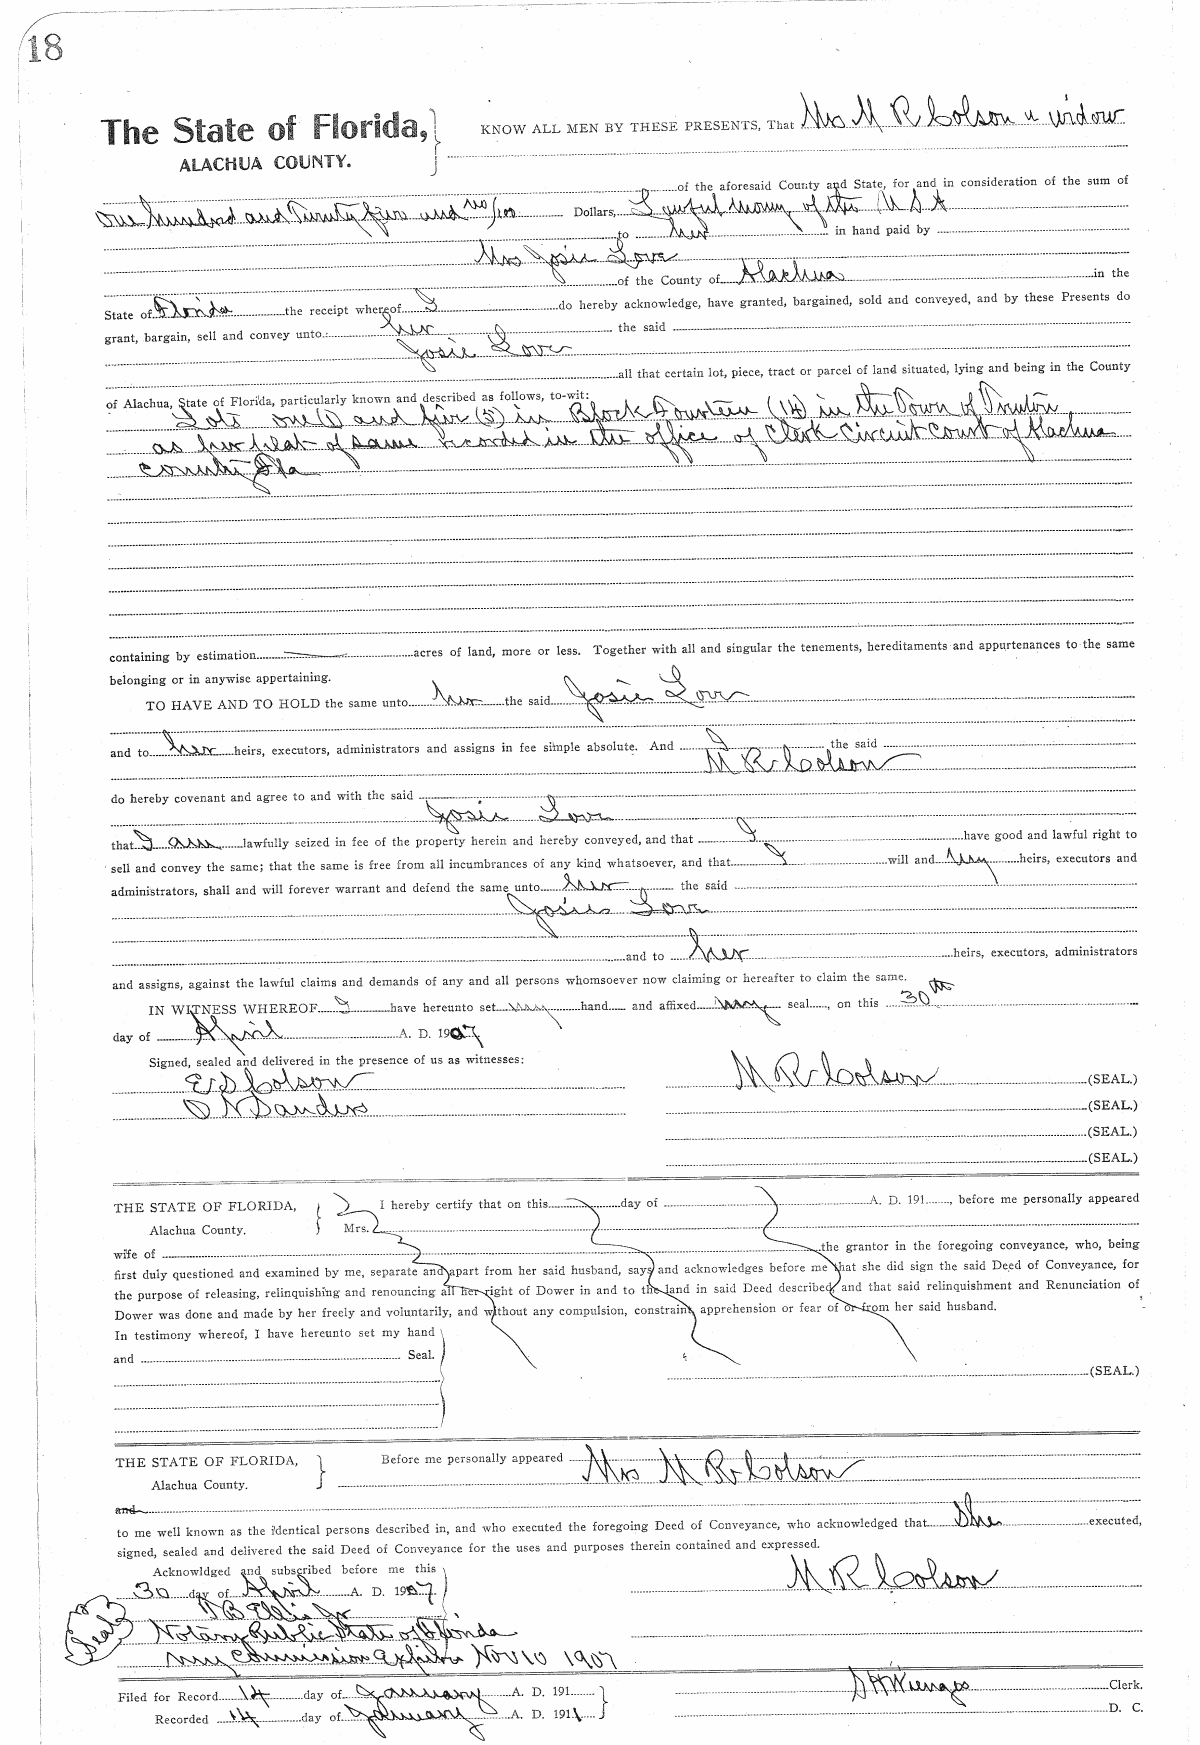 18
The State of Florida,
ALACHUA COUNTY.
KNOW ALL MEN BY THESE PRESENTS, That Mrs M R Colson a widow
of the aforesaid County and State, for and in consideration of the sum of
One hundred and Twenty five and no/100 Dollars, Lawful money of the U S A
to her in hand paid by
Mrs Josie Love
of the County of Alachua in the
State of Florida the receipt whereof I do hereby acknowledge, have granted, bargained, sold and conveyed, and by these Presents do
grant, bargain, sell and convey unto: her the said
Josie Love
all that certain lot, piece, tract or parcel of land situated, lying and being in the County
of Alachua, State of Florida, particularly known and described as follows, to-wit:
Lots one (1) and five (5) in Block Fourteen (14) in the Town of Trenton
as per plat of same recorded in the office of Clerk Circuit Court of Alachua
County Fla
containing by estimation acres of land, more or less. Together with all and singular the tenements, hereditaments and appurtenances to the same
belonging or in anywise appertaining.
TO HAVE AND TO HOLD the same unto her the said Josie Love
and to her heirs, executors, administrators and assigns in fee simple absolute. And I the said
M R Colson
do hereby covenant and agree to and with the said
Josie Love
that I am lawfully seized in fee of the property herein and hereby conveyed, and that I have good and lawful right to
sell and convey the same; that the same is free from all incumbrances of any kind whatsoever, and that I will and my heirs, executors and
administrators, shall and will forever warrant and defend the same unto her the said
Josie Love
and to her heirs, executors, administrators
and assigns, against the lawful claims and demands of any and all persons whomsoever now claiming or hereafter to claim the same.
IN WITNESS WHEREOF I have hereunto set my hand and affixed my seal, on this 30th
day of April A. D. 1907
Signed, sealed and delivered in the presence of us as witnesses:
E S Colson M R Colson (SEAL.)
D N Sanders (SEAL.)
(SEAL.)
(SEAL.)
THE STATE OF FLORIDA, I hereby certify that on this day of A. D. 191 , before me personally appeared
Alachua County. Mrs.
wife of the grantor in the foregoing conveyance, who, being
first duly questioned and examined by me, separate and apart from her said husband, says and acknowledges before me that she did sign the said Deed of Conveyance, for
the purpose of releasing, relinquishing and renouncing all her right of Dower in and to the land in said Deed described, and that said relinquishment and Renunciation of
Dower was done and made by her freely and voluntarily, and without any compulsion, constraint, apprehension or fear of or from her said husband.
In testimony whereof, I have hereunto set my hand
and Seal.
(SEAL.)
THE STATE OF FLORIDA, Before me personally appeared Mrs M R Colson
Alachua County.
and
to me well known as the identical persons described in, and who executed the foregoing Deed of Conveyance, who acknowledged that She executed,
signed, sealed and delivered the said Deed of Conveyance for the uses and purposes therein contained and expressed.
Acknowldged and subscribed before me this
30 day of April A. D. 1907 M R Colson
T B Ellis Jr
Seal Notary Public State of Florida
my Commission Expires Nov 10 1907
Filed for Record 14 day of January A. D. 191 S H Wienges Clerk.
Recorded 14 day of January A. D. 1911 D. C.